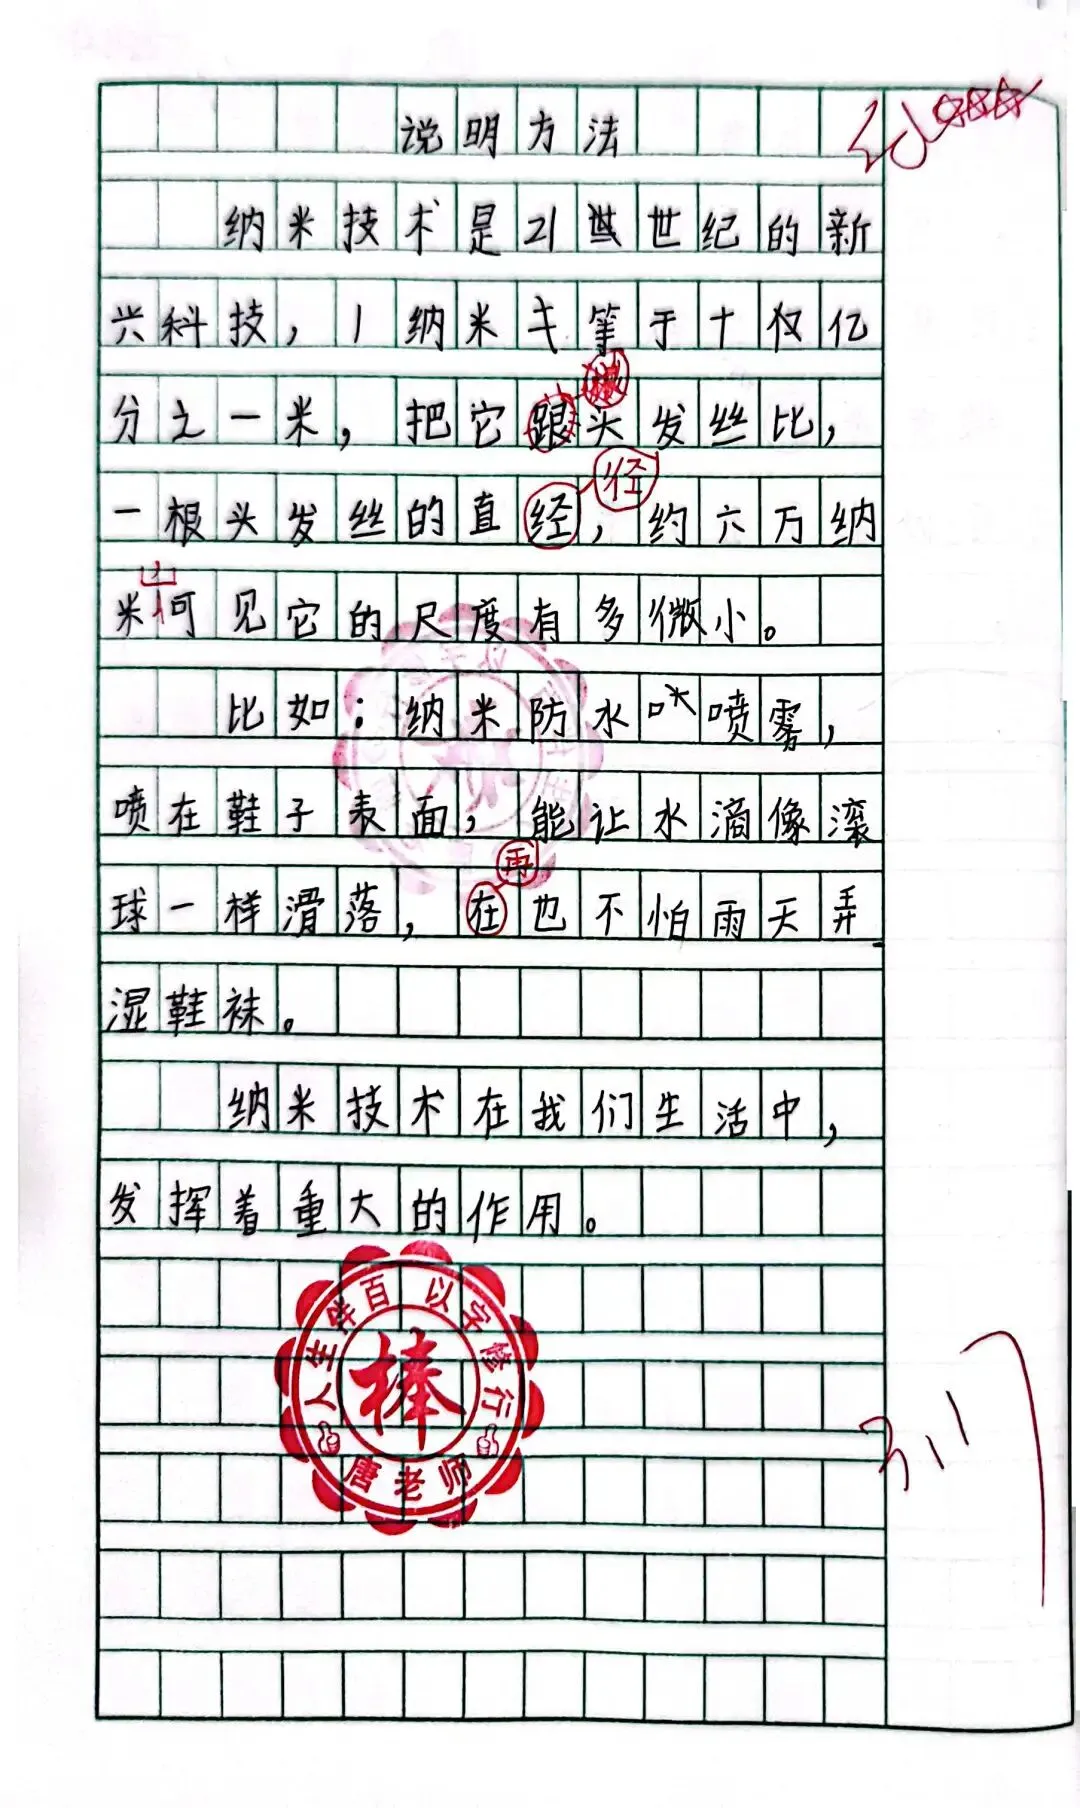 说明方法
纳米技术是21世世纪的新
兴科技，1纳米等于十仅亿
分之一米，把它跟头发丝比，
径
一根头发丝的直经，约六万纳
米可见它的尺度有多微小。
比如：纳米防水喷雾，
喷在鞋子表面，能让水滴像滚
再
球一样滑落，在也不怕雨天弄
湿鞋袜。
纳米技术在我们生活中，
发挥着重大的作用。
人生件百以字修行
棒
唐老师
3.17